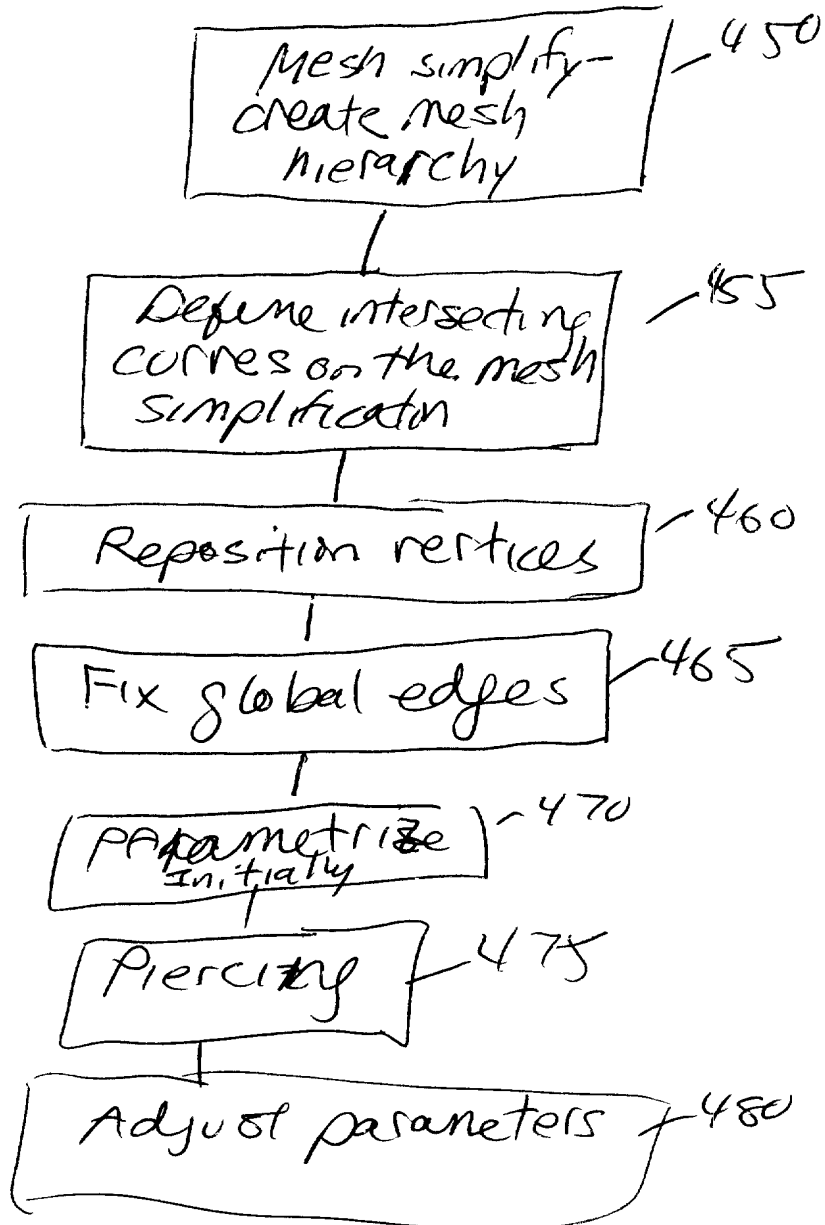 Mesh simplify-
create mesh
hierarchy
450
Define intersecting
curves on the mesh
simplificatin
455
Reposition vertices
460
Fix global edges
465
PArametrize
Initially
470
Piercing
475
Adjust parameters
480